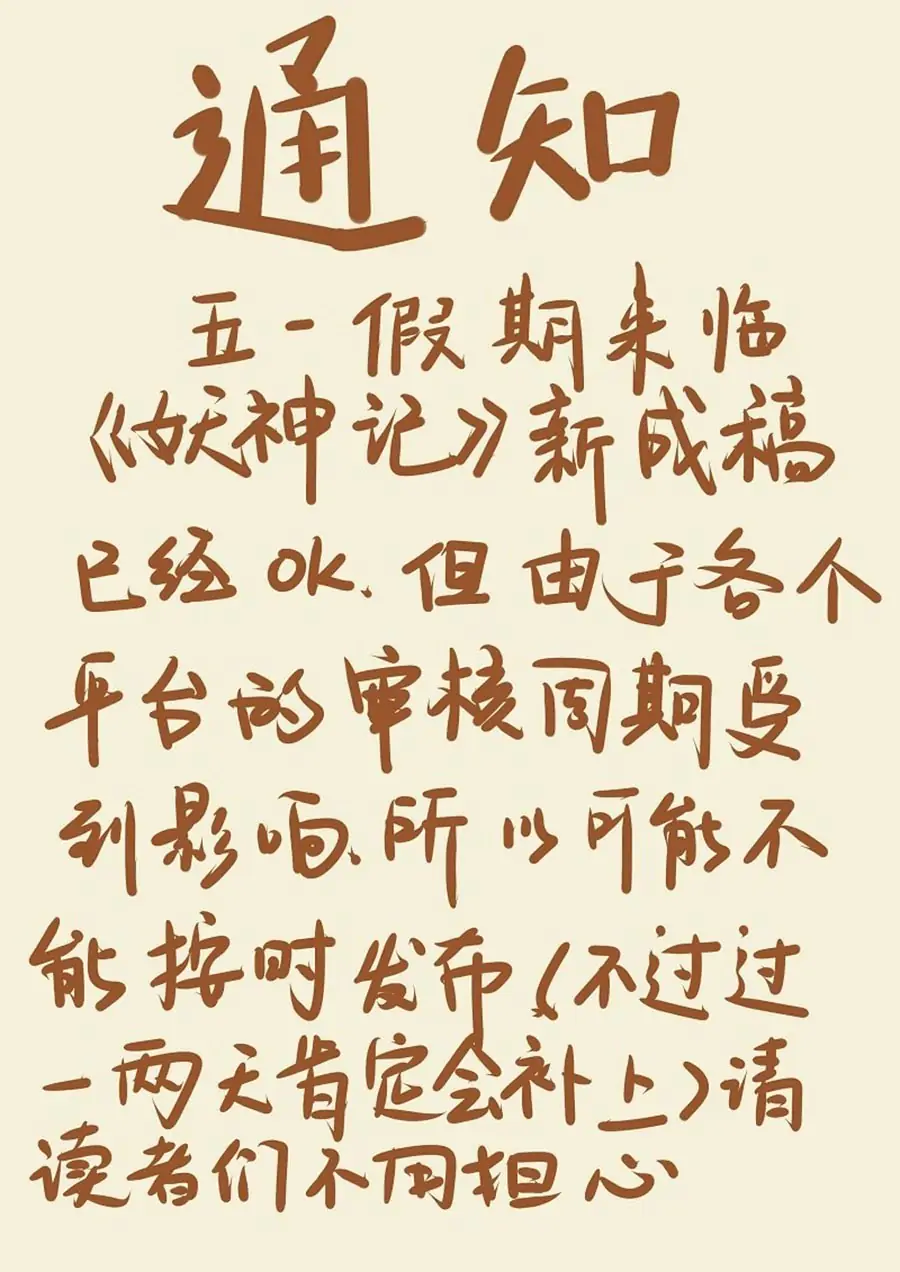 通知
五一假期来临
《妖神记》新成稿
已经OK.但由于各个
平台的审核周期受
到影响、所以可能不
能按时发布(不过过
一两天肯定会补上)请
读者们不用担心